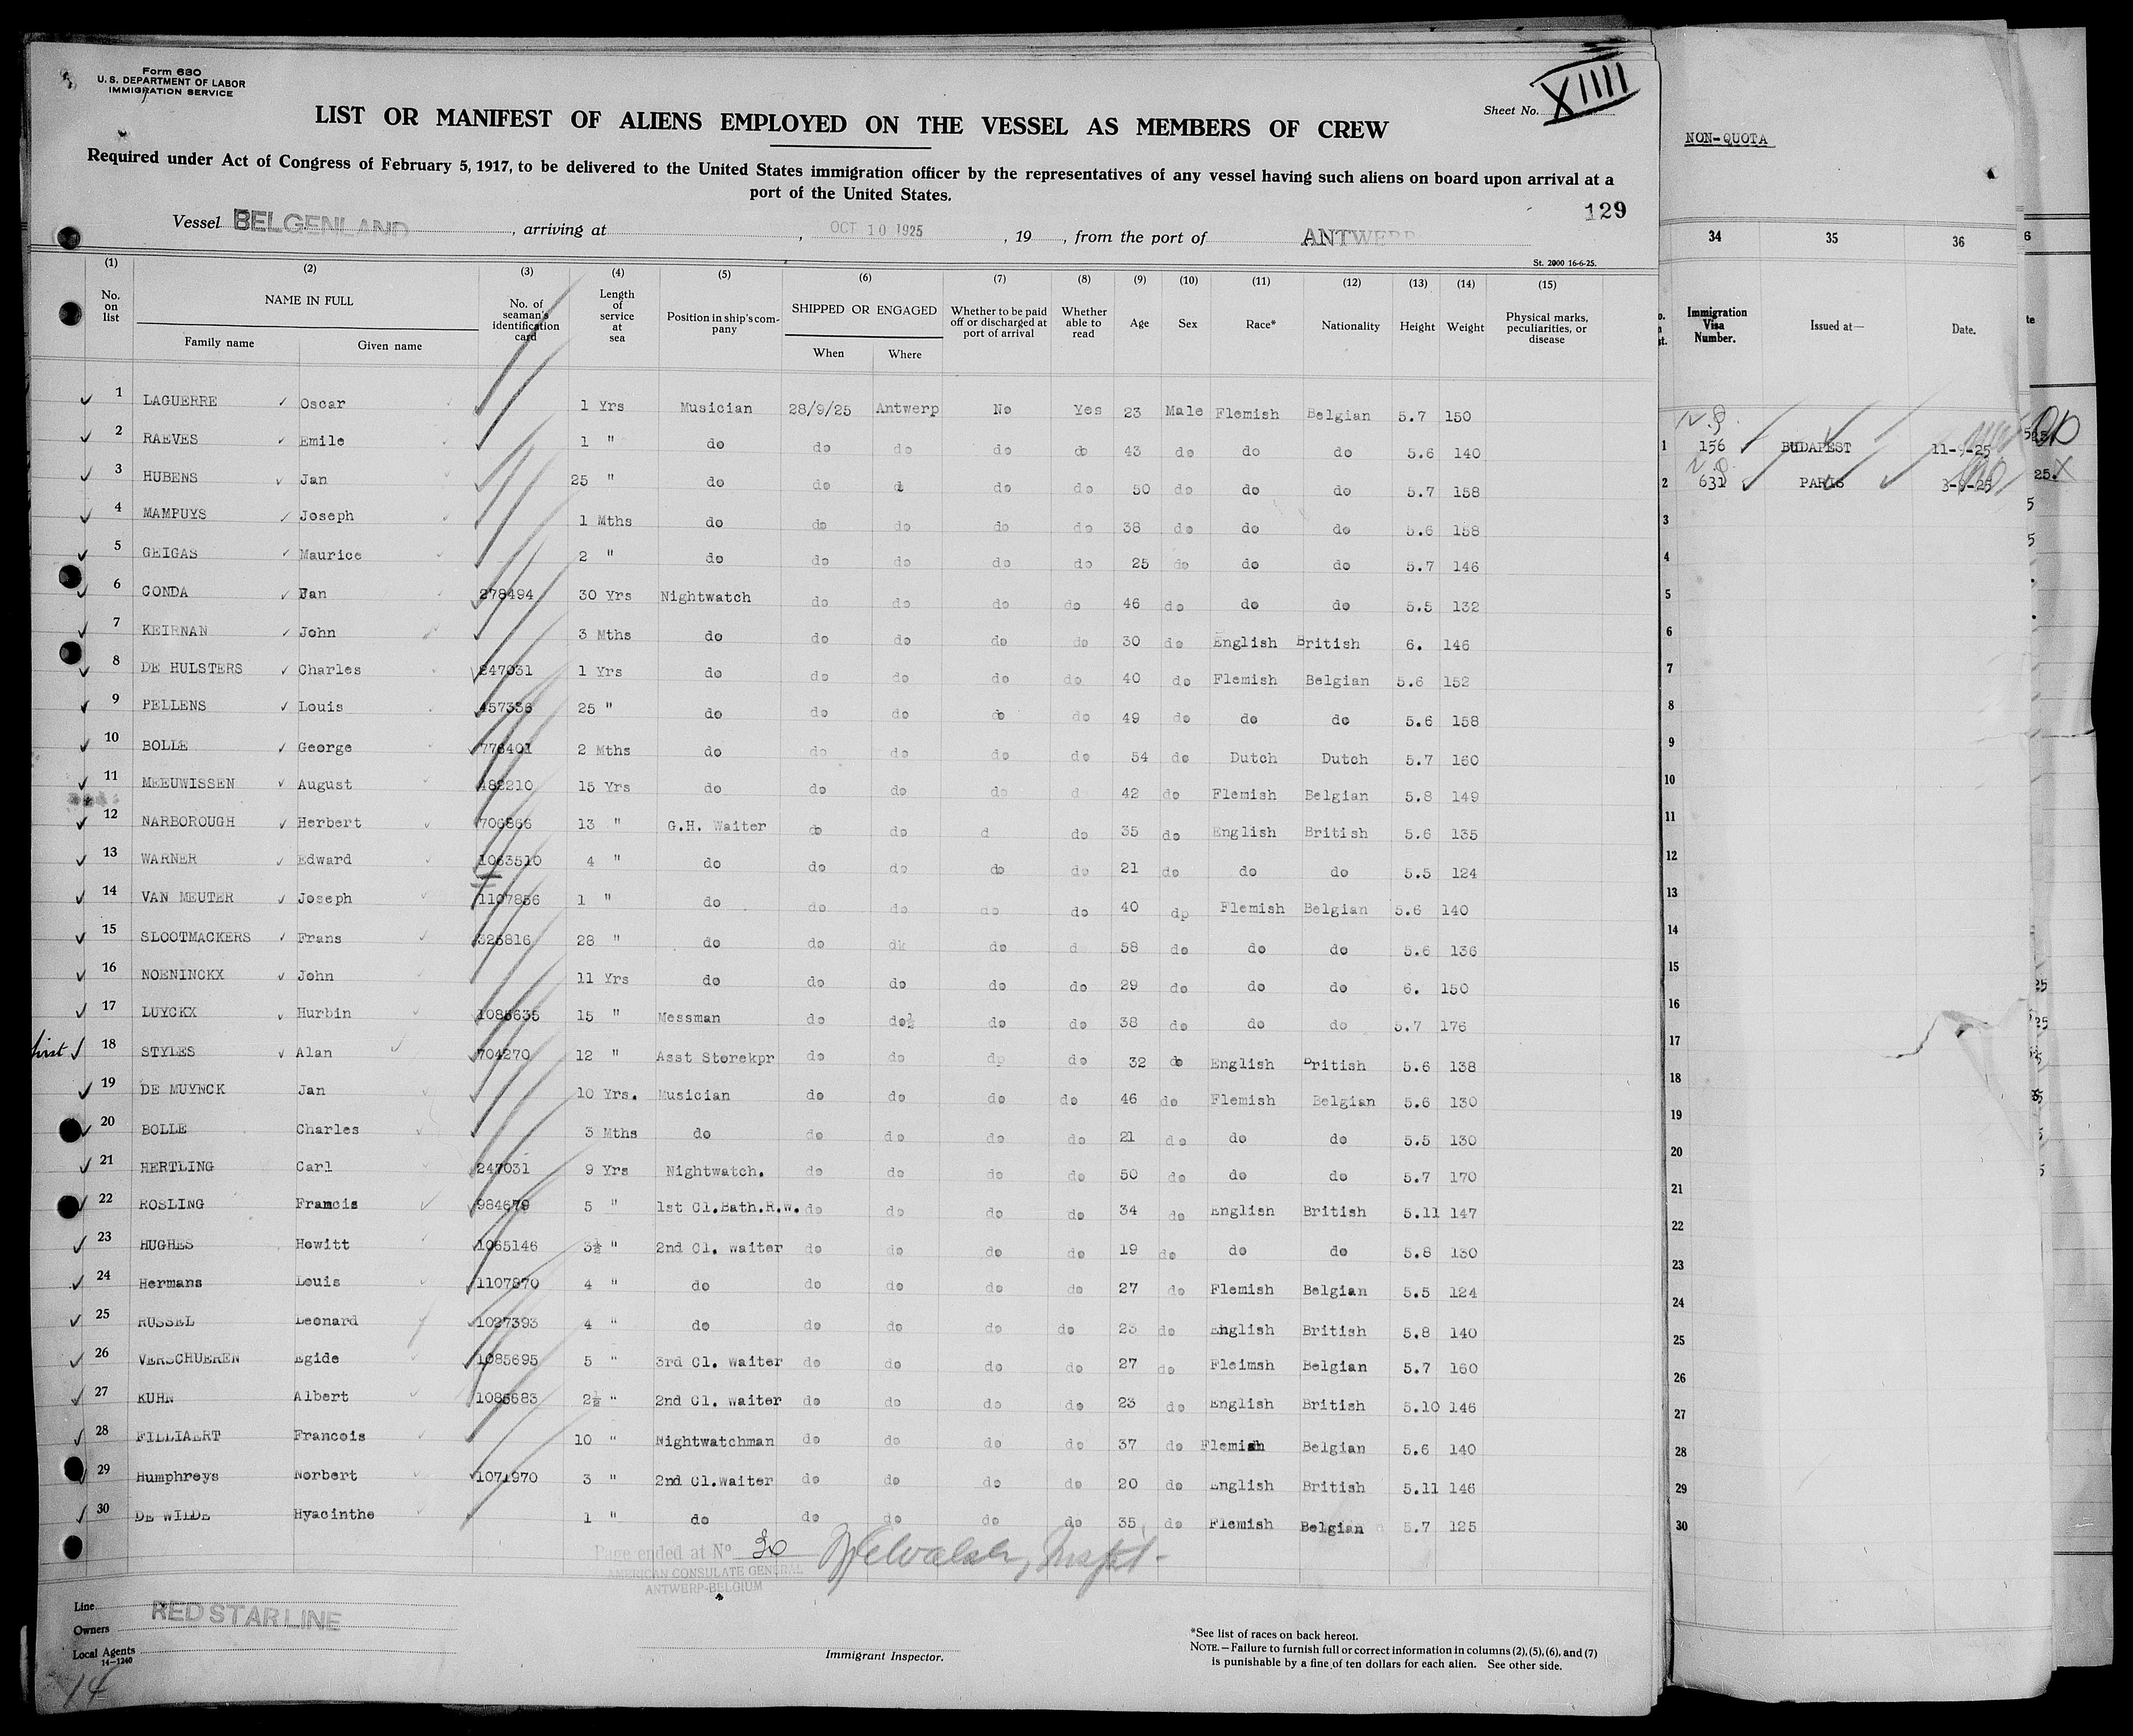 Form 680
U. S. DEPARTMENT OF LABOR
IMMIGRATION SERVICE
Sheet No. XIIII
LIST OR MANIFEST OF ALIENS EMPLOYED ON THE VESSEL AS MEMBERS OF CREW
Required under Act of Congress of February 5, 1917, to be delivered to the United States immigration officer by the representatives of any vessel having such aliens on board upon arrival at a
port of the United States.
129
Vessel BELGENLAND, arriving at , OCT 10 1925, 19 , from the port of ANTWERP
St. 2000 16-6-25.
(1) (2) (3) (4) (5) (6) (7) (8) (9) (10) (11) (12) (13) (14) (15)
No. on list NAME IN FULL Family name Given name No. of seaman's identification card Length of service at sea Position in ship's company SHIPPED OR ENGAGED When Where Whether to be paid off or discharged at port of arrival Whether able to read Age Sex Race* Nationality Height Weight Physical marks, peculiarities, or disease
1 LAGUERRE Oscar 1 Yrs Musician 28/9/25 Antwerp No Yes 23 Male Flemish Belgian 5.7 150
2 RAEVES Emile 1 " do do do do do 43 do do do 5.6 140
3 HUBENS Jan 25 " do do d do do 50 do do do 5.7 158
4 MAMPUYS Joseph 1 Mths do do do do do 38 do do do 5.6 158
5 GEIGAS Maurice 2 " do do do do do 25 do do do 5.7 146
6 CONDA Jan 278494 30 Yrs Nightwatch do do do do 46 do do do 5.5 132
7 KEIRNAN John 3 Mths do do do do do 30 do English British 6. 146
8 DE HULSTERS Charles 247031 1 Yrs do do do do do 40 do Flemish Belgian 5.6 152
9 PELLENS Louis 457336 25 " do do do do do 49 do do do 5.6 158
10 BOLLE George 776401 2 Mths do do do do do 54 do Dutch Dutch 5.7 160
11 MEEUWISSEN August 482210 15 Yrs do do do do d 42 do Flemish Belgian 5.8 149
12 NARBOROUGH Herbert 706866 13 " G.H. Waiter do do d do 35 do English British 5.6 135
13 WARNER Edward 1063510 4 " do do do do do 21 do do do 5.5 124
14 VAN MEUTER Joseph 1107856 1 " do do do do do 40 dp Flemish Belgian 5.6 140
15 SLOOTMACKERS Frans 325816 28 " do do dk do d 58 do do do 5.6 136
16 NOENINCKX John 11 Yrs do do do do do 29 do do do 6. 150
17 LUYCKX Hurbin 1085635 15 " Messman do do½ do do 38 do do do 5.7 176
first 18 STYLES Alan 704270 12 " Asst Storekpr do do dp do 32 do English British 5.6 138
19 DE MUYNCK Jan 10 Yrs. Musician do do do do 46 do Flemish Belgian 5.6 130
20 BOLLE Charles 3 Mths do do do do do 21 do do do 5.5 130
21 HERTLING Carl 247031 9 Yrs Nightwatch. do do do do 50 do do do 5.7 170
22 ROSLING Francis 984679 5 " 1st Cl.Bath.R.W. do do do do 34 do English British 5.11 147
23 HUGHES Howitt 1065146 3½ " 2nd Cl. waiter do do do do 19 do do do 5.8 130
24 Hermans Louis 1107870 4 " do do do do do 27 do Flemish Belgian 5.5 124
25 RUSSEL Leonard 1027393 4 " do do do do do 23 do English British 5.8 140
26 VERSCHUEREN Egide 1085695 5 " 3rd Cl. waiter do do do do 27 do Fleimsh Belgian 5.7 160
27 KUHN Albert 1085683 2½ " 2nd Cl. waiter do do do do 23 do English British 5.10 146
28 FILLIAERT Francois 10 " Nightwatchman do do do do 37 do Flemish Belgian 5.6 140
29 Humphreys Norbert 1071970 3 " 2nd Cl.waiter do do do do 20 do English British 5.11 146
30 DE WILDE Hyacinthe 1 " do do do do do 35 do Flemish Belgian 5.7 125
Page ended at No 30
AMERICAN CONSULATE GENERAL
ANTWERP-BELGIUM
Line
Owners RED STAR LINE
Local Agents
14-1240
Immigrant Inspector.
*See list of races on back hereof.
NOTE.—Failure to furnish full or correct information in columns (2), (5), (6), and (7)
is punishable by a fine of ten dollars for each alien. See other side.
14
NON-QUOTA
34 35 36
Immigration Visa Number. Issued at— Date.
1 156 BUDAPEST 11-9-25
2 631 PARIS
3
4
5
6
7
8
9
10
11
12
13
14
15
16
17
18
19
20
21
22
23
24
25
26
27
28
29
30